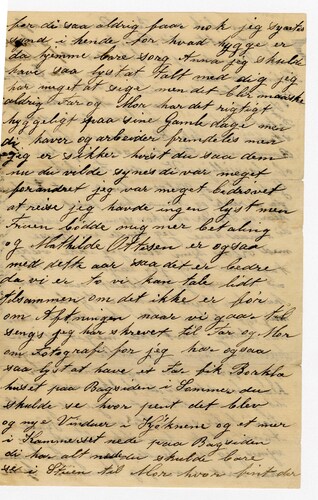 for di saa aldrig faar nok jeg syntes
synd i hende for hvad hygge er
da hjemme bare sorg Anna jeg skulde
have saa lyst at Talt med dig jeg
har meget at sege men det blir maaske
aldrig Far og Mor har det rigtigt
hyggeligt paa sine Gamle dage men
di haver og arbeider fremdeles men
jeg er sikker hvist du saa dem
nu du vilde synes di var meget
forandret jeg var meget bedrovet
at reise jeg havde ingen lyst men
Fruen bødde mig mer betaling
og Mathilde Olsen er ogsaa
med dette aar saa det er bedre
da vi er to vi kan tale lidt
tilsammen om det ikke er for
om Aftningen naar vi gaar til
sengs jeg har skrevet til Far og Mor
om Fotografi for jeg har ogsaa
saa lyst at have et Far fik
huset paa Bagsiden i Sommer du
skulde se hvor pent det blev
og nye Vinduer i Kjøknene og et mer
i Kammersset nede paa Bagsiden
di har alt nede du skulde bare
se i Stuen til Mor hvor fint der